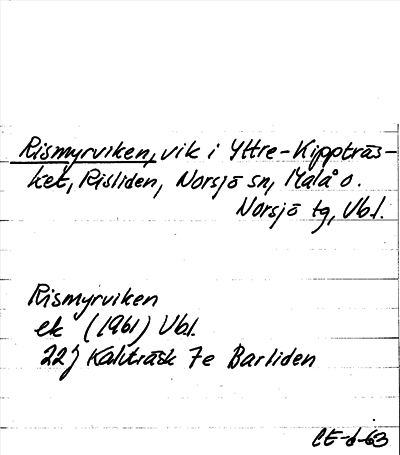 Rismyrviken, vik i Yttre-Kippträs-
ket, Risliden, Norsjö sn, Malå o.
Norsjö tg, Vbl.
Rismyrviken
ek (1961) Vbl.
22J Kalvträsk 7e Barliden
CE-d-63